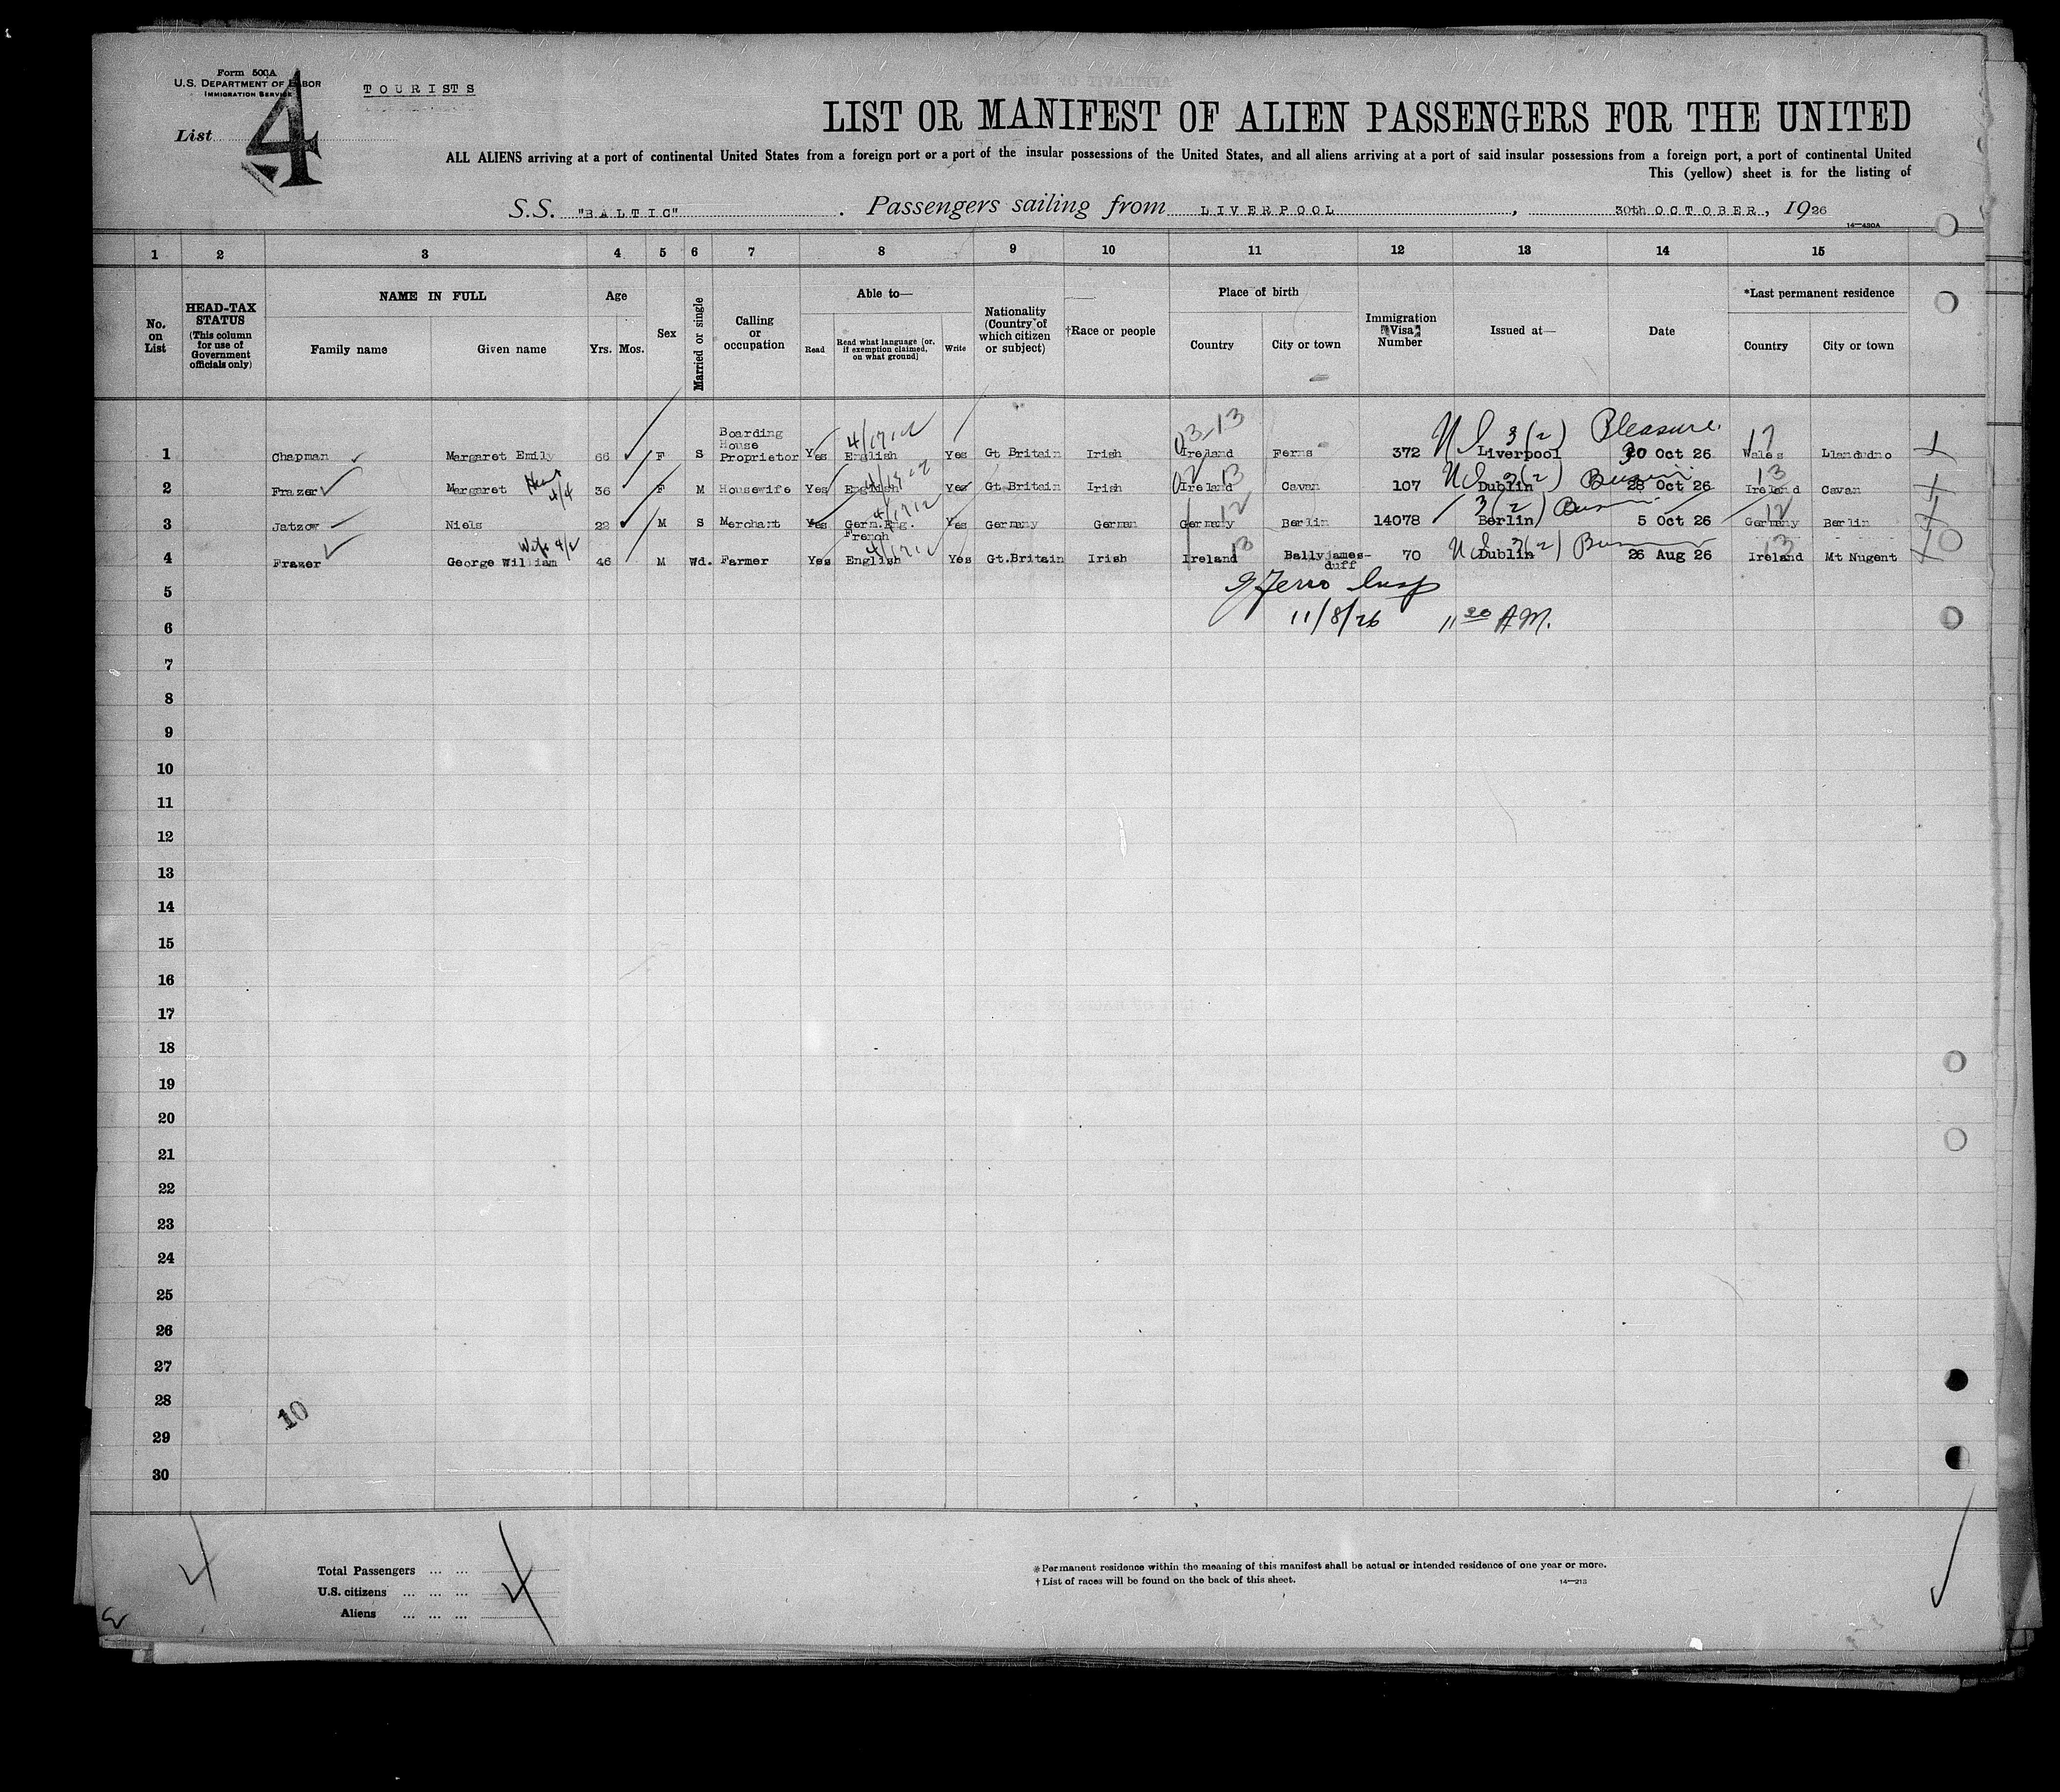 Form 500A
U.S. DEPARTMENT OF LABOR
IMMIGRATION SERVICE
TOURISTS
List 4
LIST OR MANIFEST OF ALIEN PASSENGERS FOR THE UNITED
ALL ALIENS arriving at a port of continental United States from a foreign port or a port of the insular possessions of the United States, and all aliens arriving at a port of said insular possessions from a foreign port, a port of continental United
This (yellow) sheet is for the listing of
S.S. "BALTIC". Passengers sailing from LIVERPOOL, 30th OCTOBER, 1926
14—480A
1 2 3 4 5 6 7 8 9 10 11 12 13 14 15
No. on List
HEAD-TAX STATUS
(This column for use of Government officials only)
NAME IN FULL
Family name Given name
Age
Yrs. Mos.
Sex
Married or single
Calling or occupation
Able to—
Read Read what language (or, if exemption claimed, on what ground) Write
Nationality (Country of which citizen or subject)
†Race or people
Place of birth
Country City or town
Immigration Visa Number
Issued at—
Date
*Last permanent residence
Country City or town
03-13 3(2) Pleasure. 17
1 Chapman Margaret Emily 66 F S Boarding House Proprietor Yes English Yes Gt Britain Irish Ireland Ferns 372 Liverpool 20 Oct 26 Wales Llandudno
13 3(2) 13
2 Frazer Margaret 4/4 36 F M Housewife Yes English Yes Gt.Britain Irish Ireland Cavan 107 Dublin 28 Oct 26 Ireland Cavan
12 3(2) 12
3 Jatzow Niels 22 M S Merchant Yes Germ.Eng. French Yes Germany German Germany Berlin 14078 Berlin 5 Oct 26 Germany Berlin
Wife 4/2 13 3(2) 13
4 Frazer George William 46 M Wd. Farmer Yes English Yes Gt.Britain Irish Ireland Ballyjames-duff 70 Dublin 26 Aug 26 Ireland Mt Nugent
5
Insp
6
11/8/26 11 20 AM.
7
8
9
10
11
12
13
14
15
16
17
18
19
20
21
22
23
24
25
26
27
28
10
29
30
4
Total Passengers ... ... 4
U.S. citizens ... ... ...
Aliens ... ... ...
* Permanent residence within the meaning of this manifest shall be actual or intended residence of one year or more.
† List of races will be found on the back of this sheet.
14—213